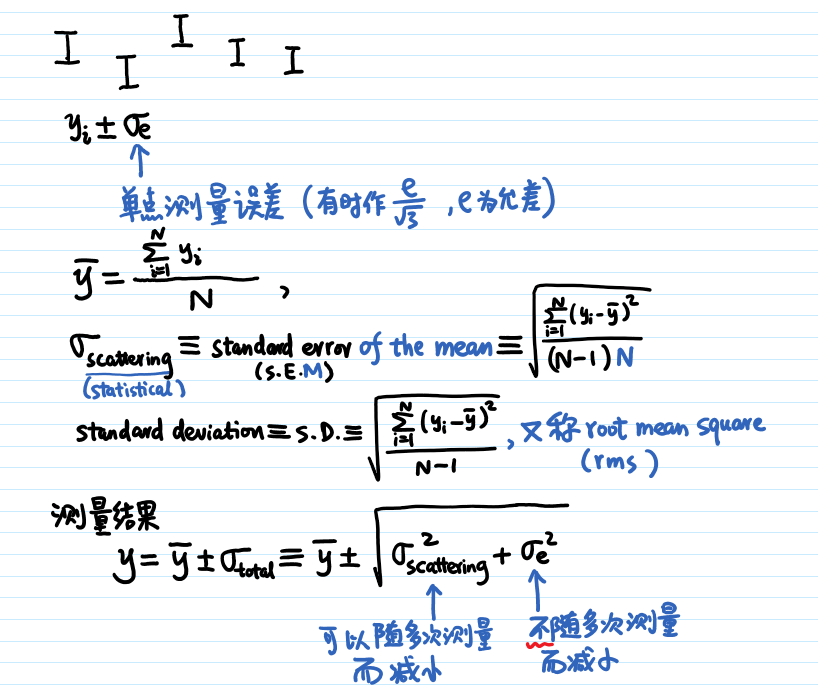 y_i ± σ_e
单点测量误差 (有时作 e/√3 , e为允差)
ȳ = Σ_{i=1}^{N} y_i / N ,
σ_scattering ≡ standard error of the mean ≡ √( Σ_{i=1}^{N} (y_i-ȳ)² / (N-1)N )
(statistical) (S.E.M)
standard deviation ≡ S.D. ≡ √( Σ_{i=1}^{N} (y_i-ȳ)² / N-1 ) , 又称 root mean square
(rms)
测量结果
y = ȳ ± σ_total ≡ ȳ ± √( σ_scattering² + σ_e² )
可以随多次测量 不随多次测量
而减小 而减小